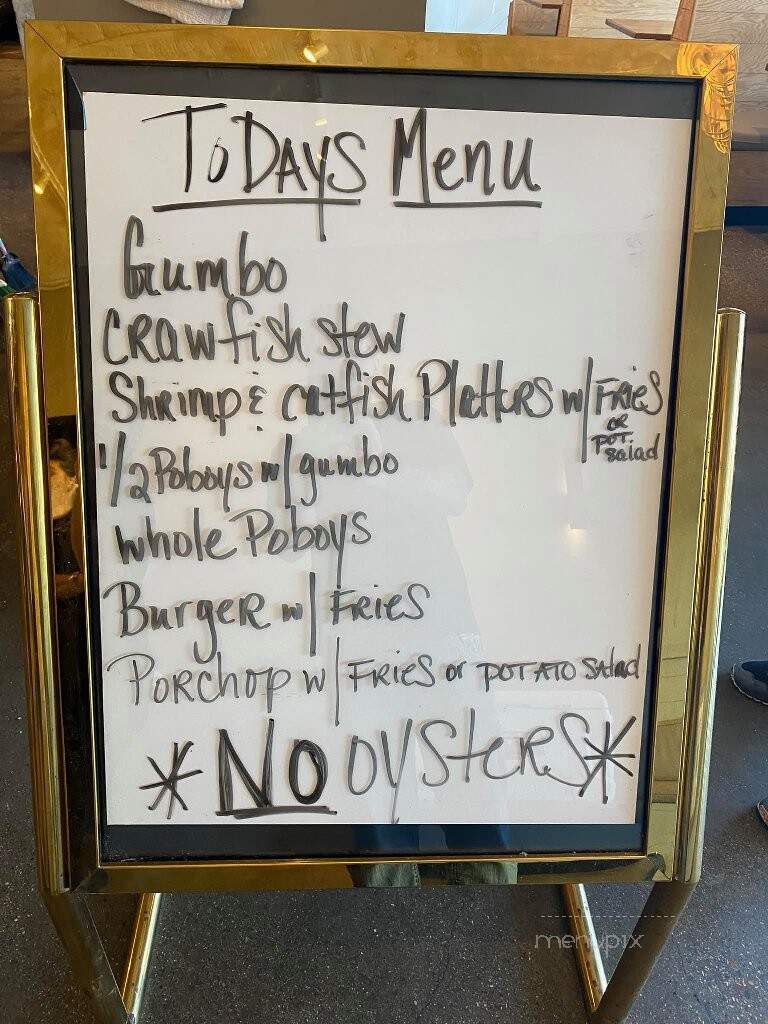 ToDAYS Menu
Gumbo
CRawfish stew
Shrimp & catfish Platters w/ FRIES
OR
POT.
salad
1/2 Poboys w/ gumbo
whole Poboys
BurgeR w/ FRIES
PORCHOP w/ FRIES or POTATO Salad
*NO OYSteRS*
menupix